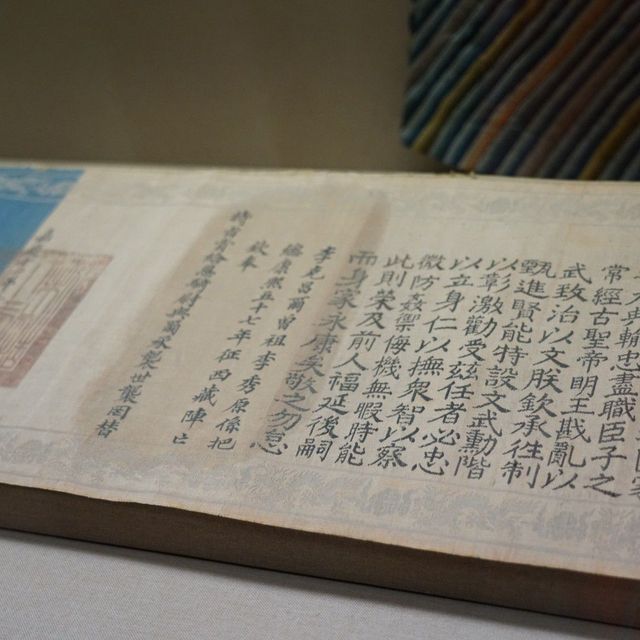 輔忠盡職臣子之
常經古聖帝明王戡亂以
武致治以文朕欽承往制
甄進賢能特設文武勳階
以彰激勸受茲任者必忠
以立身仁以撫眾智以察
微防姦禦侮機無暇時能
此則榮及前人福延後嗣
而身家永康矣敬之勿怠
李克昌爾曾祖李秀原係把
總康熙五十七年征西藏陣亡
故奉
特旨賞給恩騎尉與爾承襲世襲罔替